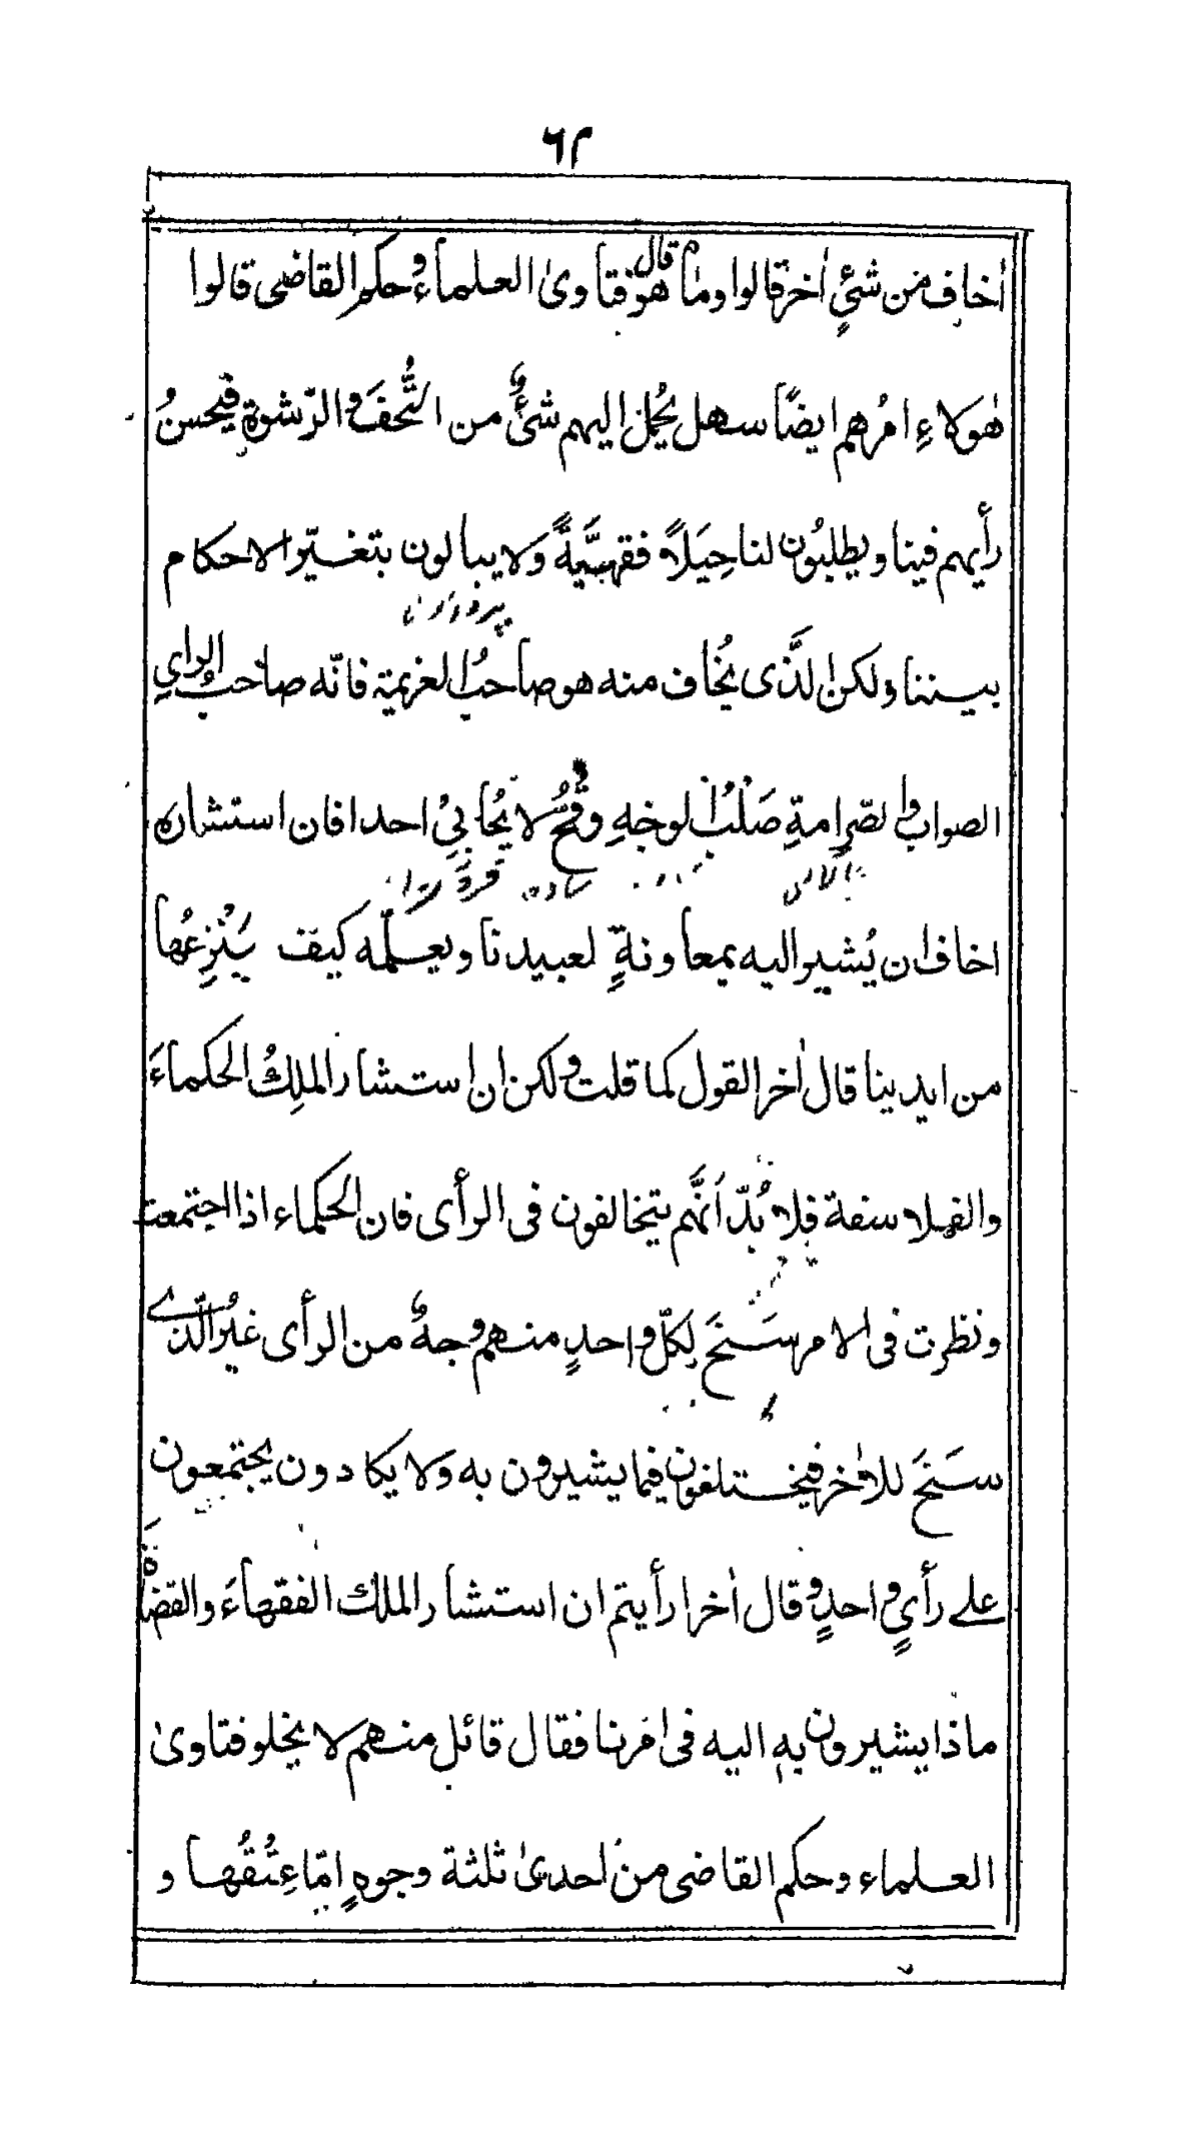 ٦٢
اٰخاف من شئیٍ اٰخر قالوا وما هو قال فتاویٰ العلماء وحکم القاضی قالوا
هٰولاءِ امُرهم ایضًا سهل یُحمل الیهم شئیٌ من التُّحفَ والرّشوةِ فیحسنُ
رأیهم فینا ویطلبُون لنا حِیَلاً فقهیَّیةً ولا یبالون بتغیّر الاحکام
بیننا ولکن الَّذی یُخاف منه هو صاحبُ العزیمة فانّه صاحبُ الرای
الصواب والصّرامةِ صَلْبُ الوجْهِ وقحٌ لا یُحابیُ احدا فان استشاره
اخاف ان یُشیر الیه بمعاونةٍ لعبیدنا ویعلّمه کیف یَنْزِعُها
من ایدینا قال اٰخر القول کما قلت ولکن ان استشار الملِكُ الحکماءَ
والفلاسفة فلا بُدّ اَنَّهم یتخالفون فی الرأی فان الحکماء اذا اجتمعت
ونظرت فی الامر سَنَحَ لِکلّ واحدٍ منهم وجهٌ من الرأی غیُر الّذے
سَنَحَ للاٰخر فیختلفون فیما یشیرون به ولا یکادون یجتمعون
علے رأیٍ واحدٍ وقال اٰخر ارأیتم ان استشار الملك الفقهاءَ والقضاةَ
ماذا یشیرون بهٖ الیه فی امْرنا فقال قائل منهم لا یخلو فتاویٰ
العلماء وحکم القاضی من احدیٰ ثلثة وجوهٍ اِمّا عِتْقُها و